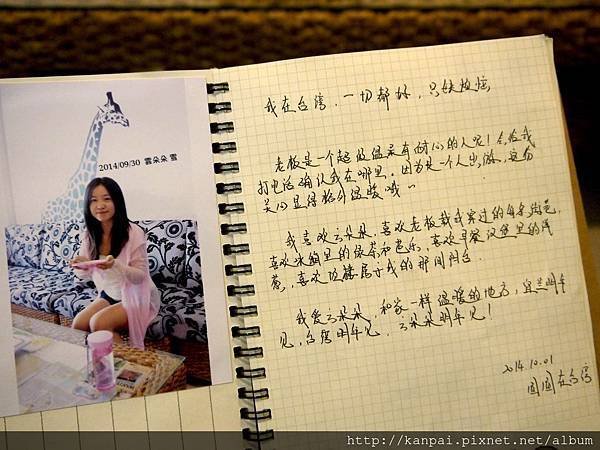 2014/09/30 雲朵朵 雪
我在台湾,一切都好,只缺烦恼
老板是一个超级温柔有耐心的人呢!会给我
打电话确认我在哪里,因为是一个人出游,这份
关心显得格外温暖哦~
我喜欢云朵朵,喜欢老板载我穿过的每条街巷,
喜欢冰箱里的绿茶和芭乐,喜欢早餐汉堡里的
我爱云朵朵,和家一样温暖的地方,宜兰明年
见,台湾明年见,云朵朵明年见!
2014.10.01
圆圆在台湾
http://kanpai.pixnet.net/album